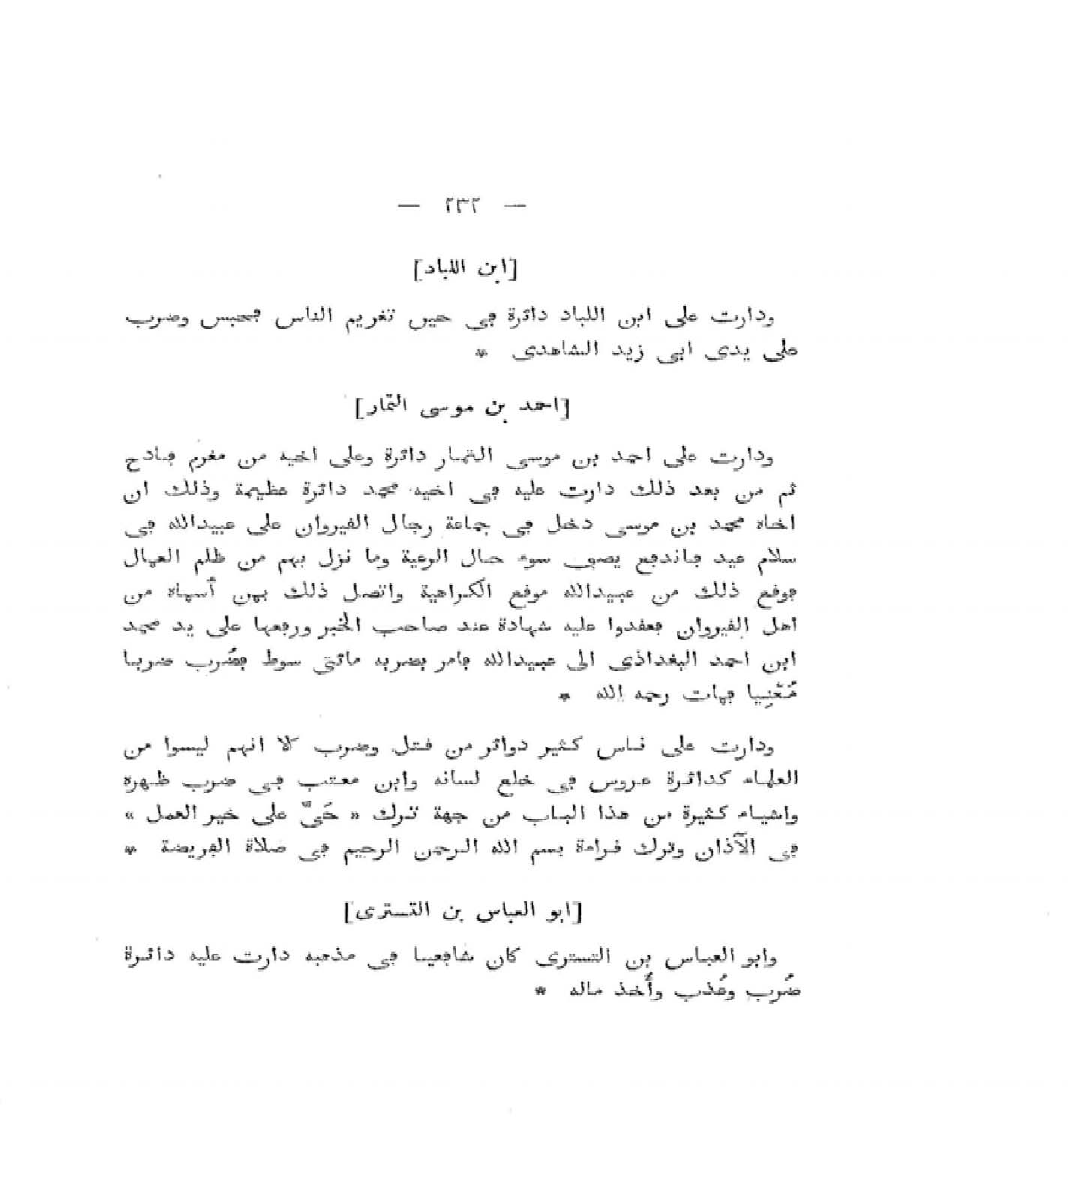 — ٢٣٢ —
[ابن اللباد]
ودارت على ابن اللباد دائرة فى حين تغريم الناس فحبس وضرب
على يدى ابى زيد الشاهدى *
[احمد بن موسى التمار]
ودارت على احمد بن موسى التمار دائرة وعلى اخيه من مغرم فادح
ثم من بعد ذلك دارت عليه فى اخيه محمد دائرة عظيمة وذلك ان
اخاه محمد بن موسى دخل فى جماعة رجال القيروان على عبيدالله فى
سلام عيد فاندفع يصف سوء حال الرعية وما نزل بهم من ظلم العمال
فوقع ذلك من عبيدالله موقع الكراهية واتصل ذلك بمن أسماه من
اهل القيروان فعقدوا عليه شهادة عند صاحب الخبر ورفعها على يد محمد
ابن احمد البغداذى الى عبيدالله فامر بضربه مائتى سوط فضُرب ضربا
مُثْنِيا فمات رحمه الله *
ودارت على ناس كثير دوائر من قتل وضرب كلا انهم ليسوا من
العلماء كدائرة عروس فى خلع لسانه وابن معتب فى ضرب ظهره
واشياء كثيرة من هذا الباب من جهة ترك « حَىَّ على خير العمل »
فى الآذان وترك قراءة بسم الله الرحمن الرحيم فى صلاة الفريضة *
[ابو العباس بن التسترى]
وابو العباس بن التسترى كان شافعيا فى مذهبه دارت عليه دائرة
ضُرب وعُذب وأُخذ ماله *